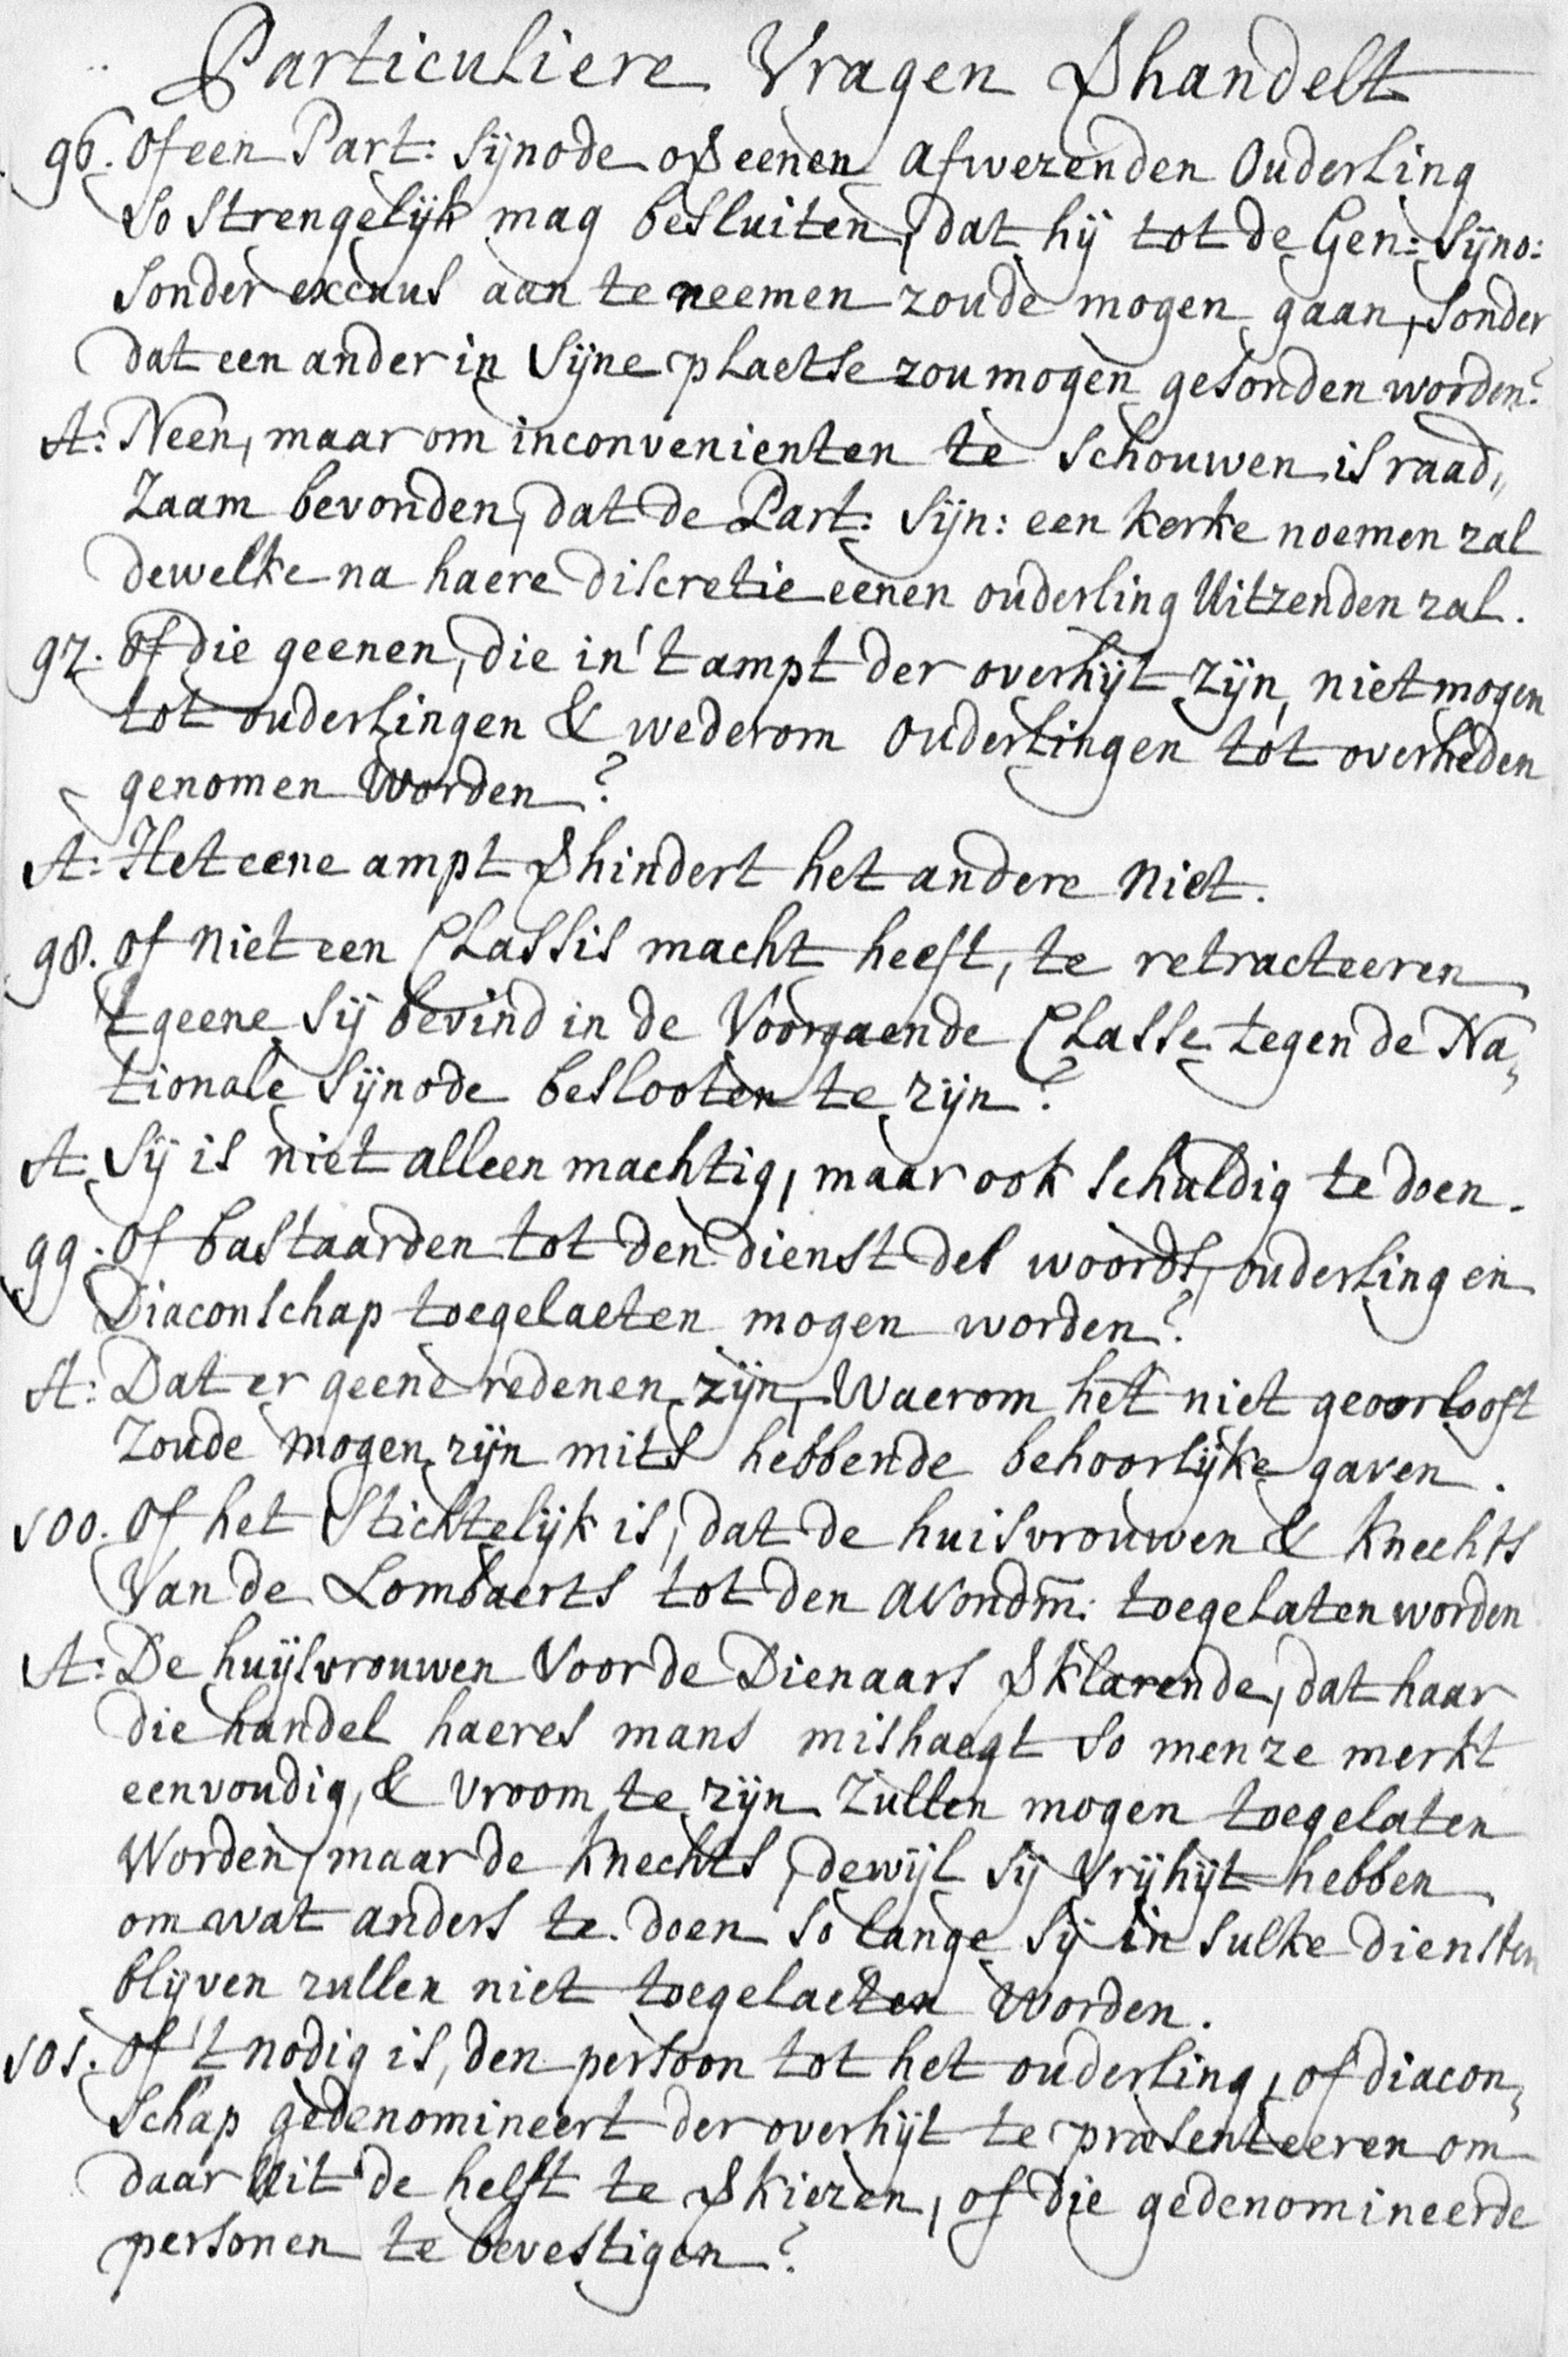 Particuliere Vragen Vhandelt
96. Of een Part: Sÿnode op eenen afwezenden Ouderling
so strengelÿk mag besluiten, dat hÿ tot de Gen: Sÿno:
sonder excuus aan te neemen zoude mogen gaan, sonder
dat een ander in sÿne plaetse zou mogen gesonden worden?
A: Neen, maar om inconvenienten te schouwen is raad„
zaam bevonden, dat de Part: Sÿn: een kerke noemen zal
dewelke na haere discretie eenen ouderling Uitzenden zal.
97. Of die geenen, die in 't ampt der overhÿt zÿn, niet mogen
tot ouderlingen & wederom Ouderlingen tot overheden
genomen Worden?
A: Het eene ampt Vhindert het andere niet.
98. Of niet een Classis macht heeft, te retracteeren
't geene sÿ bevind in de Voorgaende Classe tegen de Na„
tionale Sÿnode beslooten te zÿn?
A: Sÿ is niet alleen machtig, maar ook schuldig te doen.
99. Of bastaarden tot den dienst des woords, ouderling en
Diaconschap toegelaeten mogen worden?
A: Dat er geene redenen zÿn, Waerom het niet geoorlooft
Zoude mogen zÿn mits hebbende behoorlÿke gaven.
100. Of het Stichtelÿk is, dat de huisvrouwen & knechts
Van de Lombaerts tot den avondm̄: toegelaten worden
A: De huÿsvrouwen Voor de Dienaars Vklarende, dat haar
die handel haeres mans mishaegt so men ze merkt
eenvoudig, & vroom te zÿn Zullen mogen toegelaten
Worden, maar de knechts, dewÿl sÿ Vrÿhÿt hebben
om wat anders te doen so lange sÿ in sulke diensten
blÿven zullen niet toegelaeten Worden.
101. Of 't nodig is, den persoon tot het ouderling, of diacon„
schap gedenomineert der overhÿt te præsenteeren om
daar Uit de helft te Vkiezen, of die gedenomineerde
personen te bevestigen?